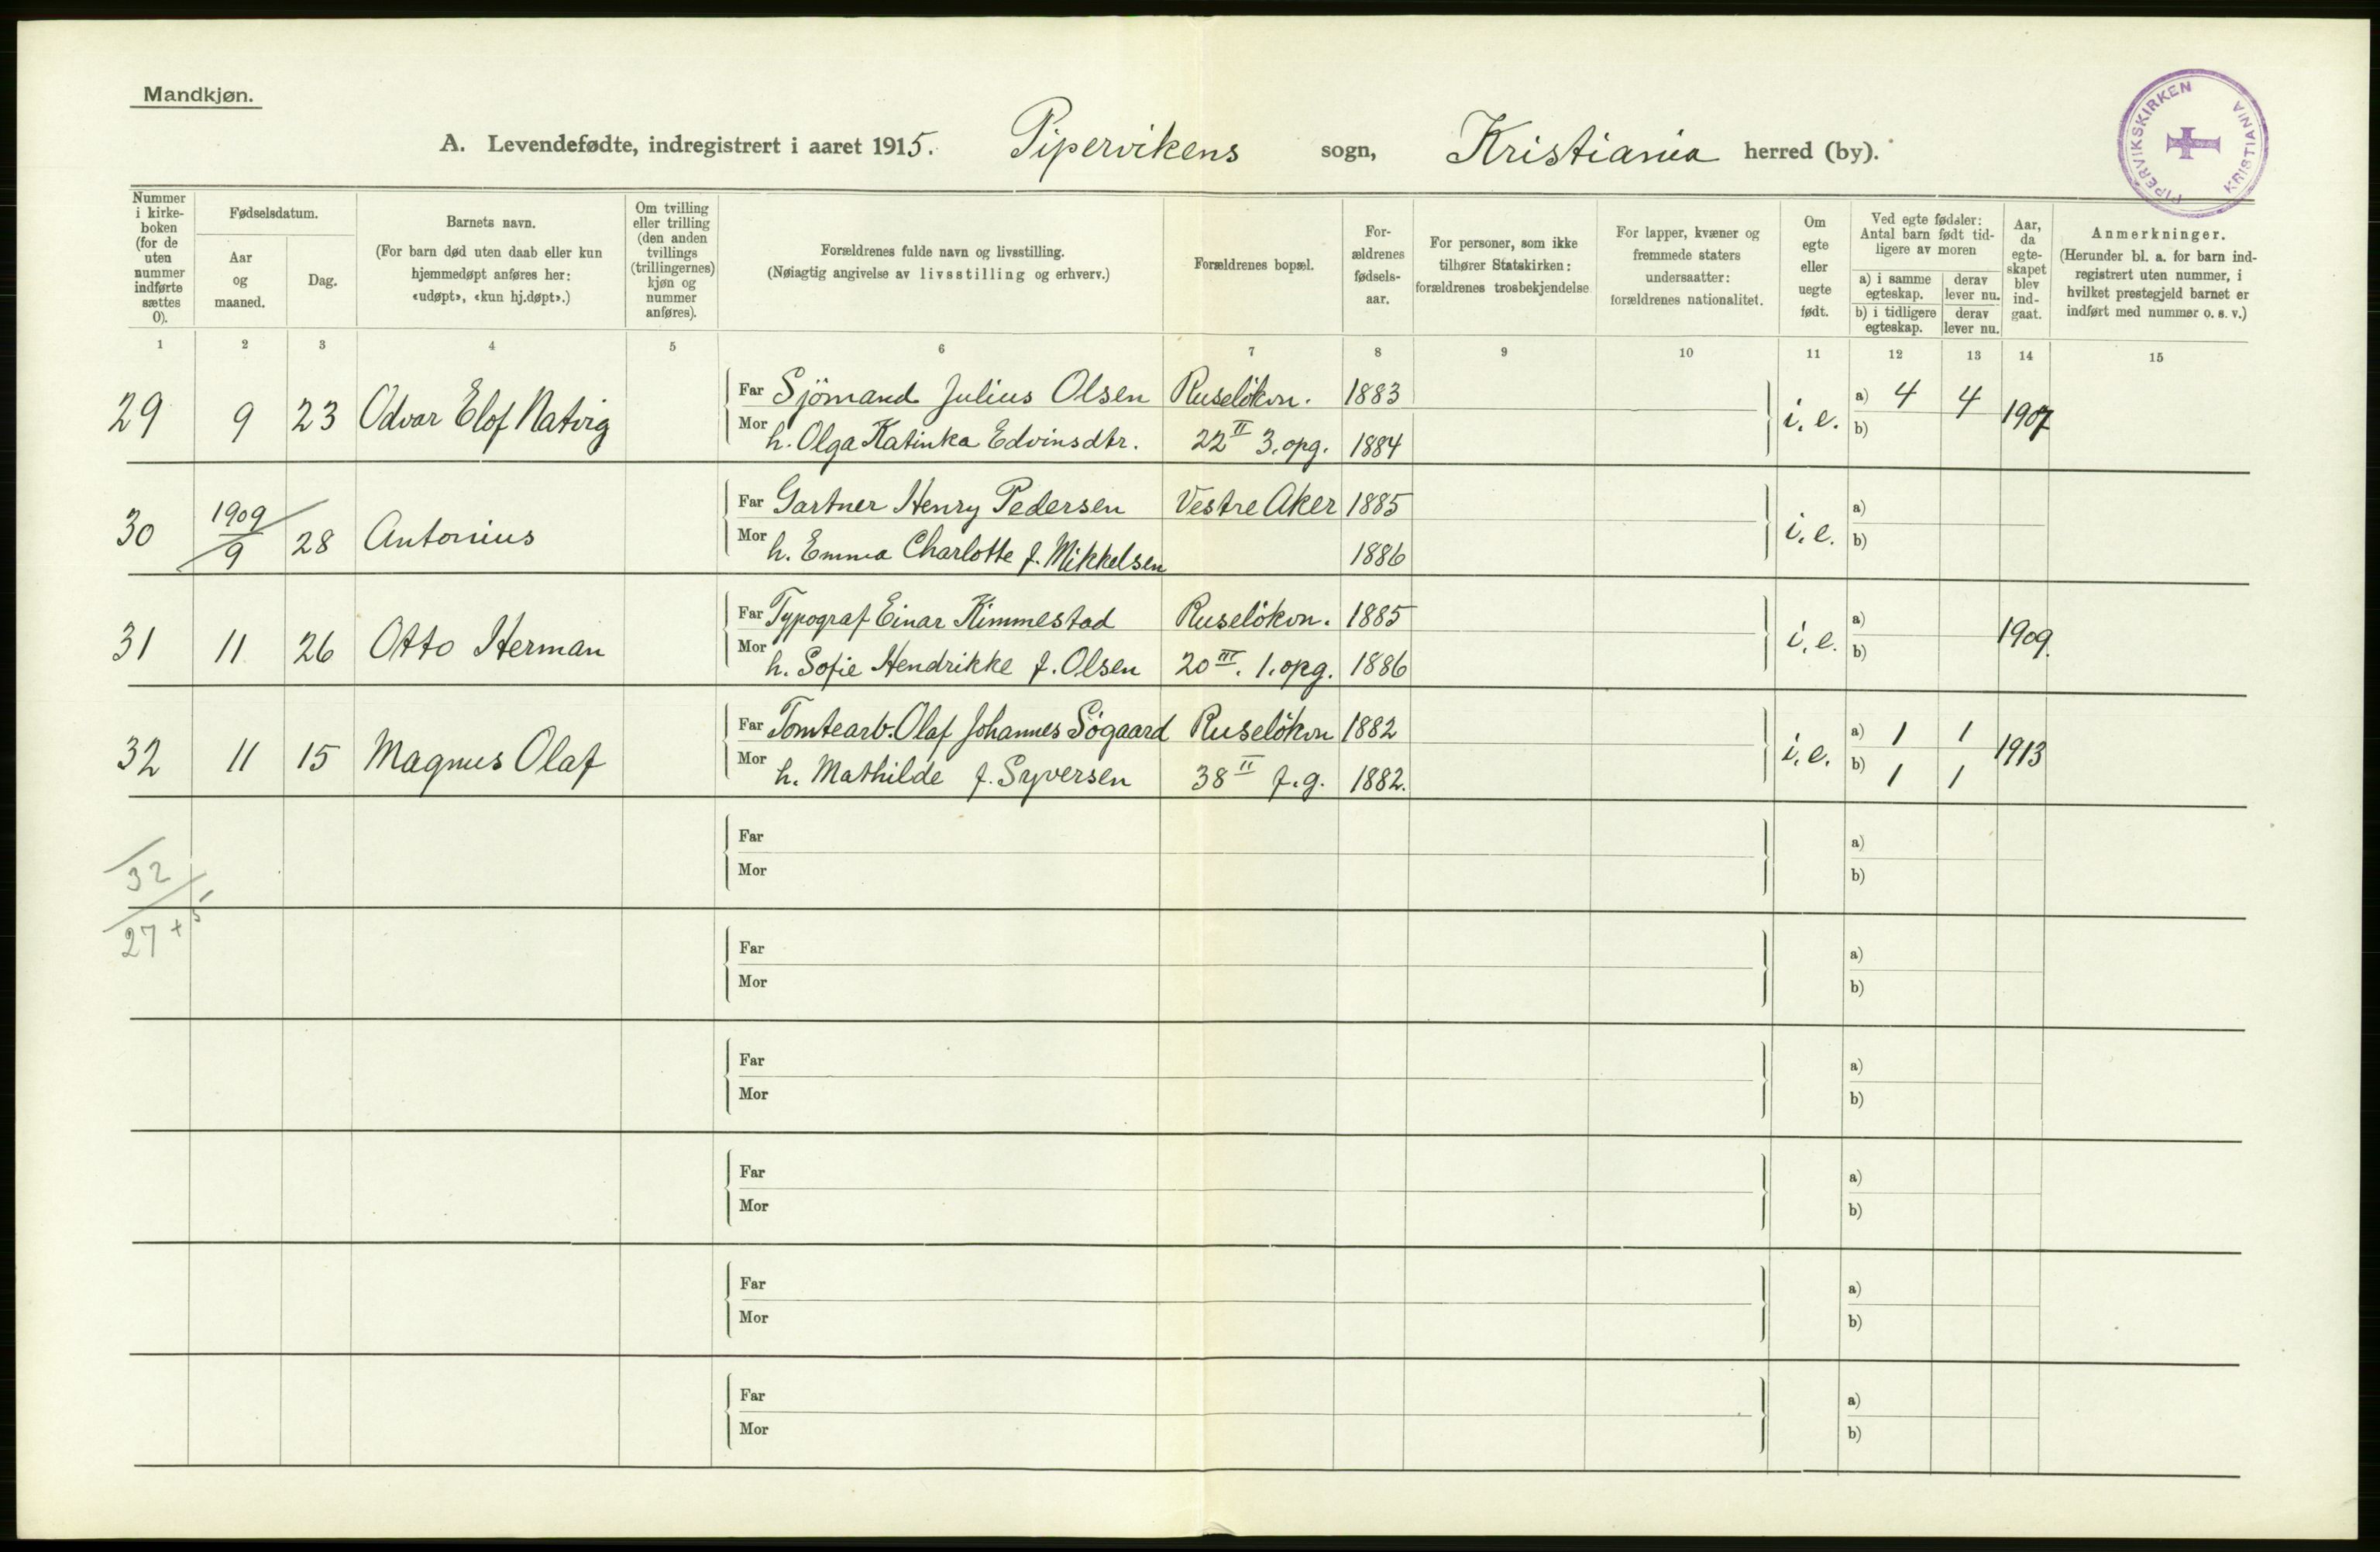 Mandkjøn.
PIPERVIKSKIRKEN KRISTIANIA
A. Levendefødte, indregistrert i aaret 1915. Pipervikens sogn, Kristiania herred (by).
Nummer i kirke-boken (for de uten nummer indførte sættes 0).
Fødselsdatum.
Aar og maaned.
Dag.
Barnets navn.
(For barn død uten daab eller kun hjemmedøpt anføres her: «udøpt», «kun hj.døpt».)
Om tvilling eller trilling (den anden tvillings (trillingernes) kjøn og nummer anføres).
Forældrenes fulde navn og livsstilling.
(Nøiagtig angivelse av livsstilling og erhverv.)
Forældrenes bopæl.
For-ældrenes fødsels-aar.
For personer, som ikke tilhører Statskirken: forældrenes trosbekjendelse
For lapper, kvæner og fremmede staters undersaatter: forældrenes nationalitet.
Om egte eller uegte født.
Ved egte fødsler: Antal barn født tid-ligere av moren
a) i samme egteskap. derav lever nu.
b) i tidligere egteskap. derav lever nu.
Aar, da egte-skapet blev ind-gaat.
Anmerkninger.
(Herunder bl. a. for barn ind-registrert uten nummer, i hvilket prestegjeld barnet er indført med nummer o. s. v.)
1 2 3 4 5 6 7 8 9 10 11 12 13 14 15
29 9 23 Odvar Elof Natvig Far Sjömand Julius Olsen Ruselökvn. 1883 i. e. a) 4 4 1907
Mor h. Olga Katinka Edvinsdtr. 22 II 3. opg. 1884 b)
30 1909 9 28 Antonius Far Gartner Henry Pedersen Vestre Aker 1885 i. e. a)
Mor h. Emma Charlotte f. Mikkelsen 1886 b)
31 11 26 Otto Herman Far Typograf Einar Kimmestad Ruselökvn. 1885 i. e. a) 1909.
Mor h. Sofie Hendrikke f. Olsen 20 III. 1. opg. 1886 b)
32 11 15 Magnus Olaf Far Tomtearb. Olaf Johannes Sögaard Ruselökvn 1882 i. e. a) 1 1 1913
Mor h. Mathilde f. Syversen 38 II f. g. 1882. b) 1 1
Far a)
Mor b)
32
27 + 5
Far a)
Mor b)
Far a)
Mor b)
Far a)
Mor b)
Far a)
Mor b)
Far a)
Mor b)